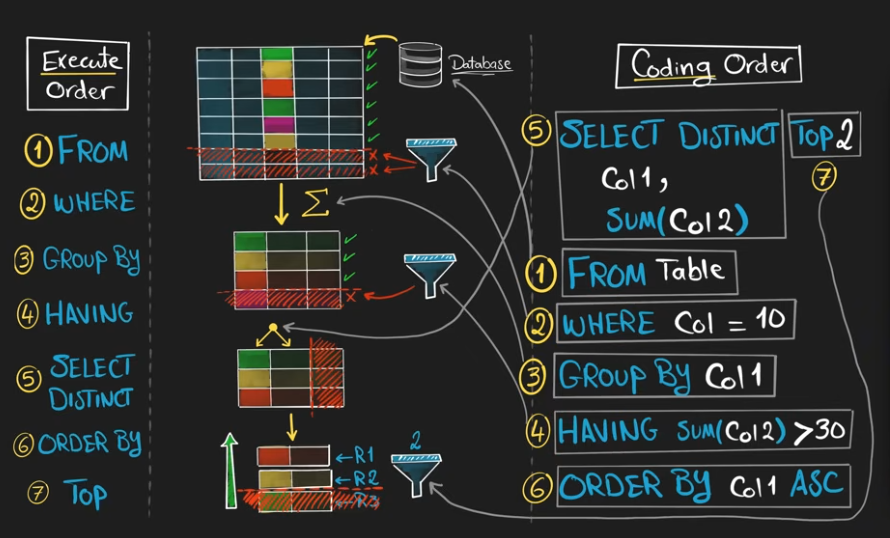 Execute
Order
1 FROM
2 WHERE
3 GROUP BY
4 HAVING
5 SELECT
DISTINCT
6 ORDER BY
7 TOP
Database
Σ
2
←R1
←R2
←R3
Coding Order
5 SELECT DISTINCT TOP 2
7
Col1,
SUM(Col2)
1 FROM Table
2 WHERE Col = 10
3 GROUP BY Col1
4 HAVING SUM(Col2) >30
6 ORDER BY Col1 ASC